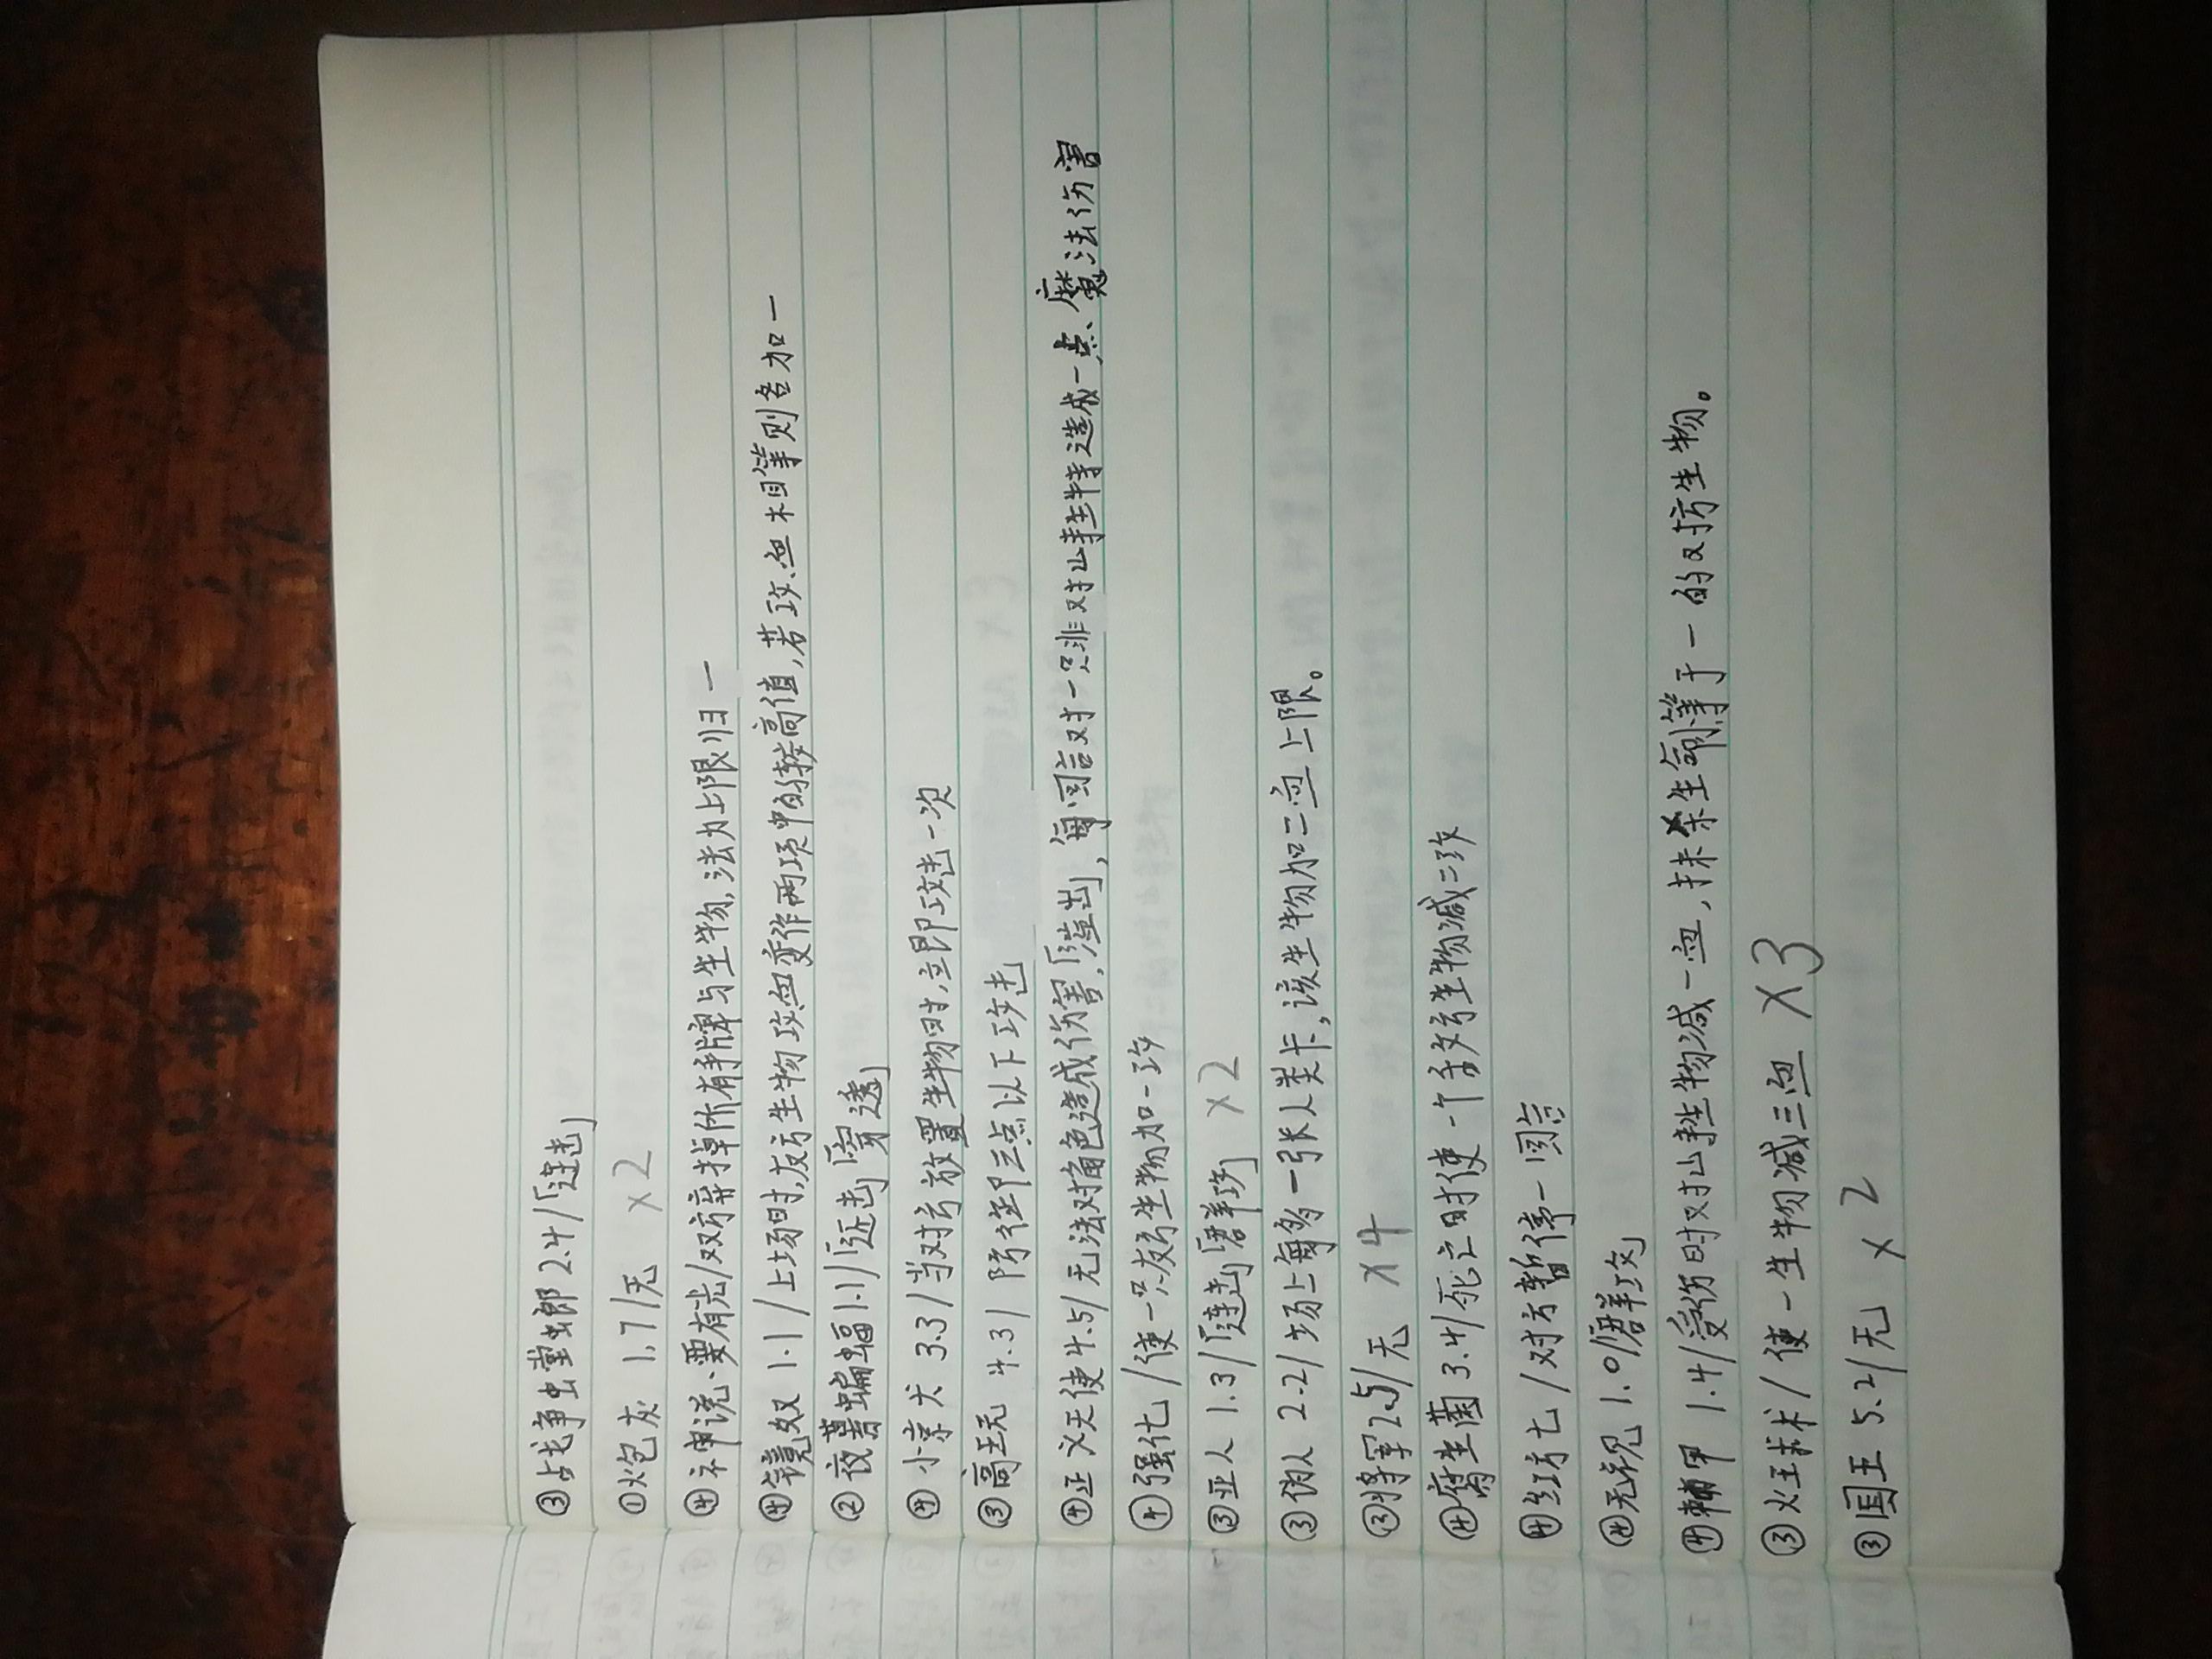 ③战争虫螳螂 2.4/「连击」
①炮灰 1.7/无 ×2
④神说、要有光/双方弃掉所有手牌与生物,法力上限归一
④镜奴 1.1/上场时,友方生物攻血变作两项中的较高值,若攻血相等则各加一
②夜蔷蝙蝠1.1/「远击」「穿透」
④小京犬 3.3/当对方放置生物时,立即攻击一次
③高玩 4.3/防御三点以下攻击
④正义天使4.5/无法对角色造成伤害,「溢出」,每回合对一只非对山手生特造成一点魔法伤害
④强化/使一只友方生物加一攻
③亚人 1.3/「连击」「群攻」 ×2
③伪人 2.2/场上每多一张人类卡,该生物加二血上限。
③将军2.5/无 ×4
④腐生菌 3.4/死亡时使一个敌方生物减二攻
④红坊七/对方暂停一回合
④无视 1.0/「群攻」
④棘甲 1.4/受伤时对山手生物减一血,抹杀生命等于一的对方生物。
③火球术/使一生物减三血 ×3
③国王 5.2/无 ×2